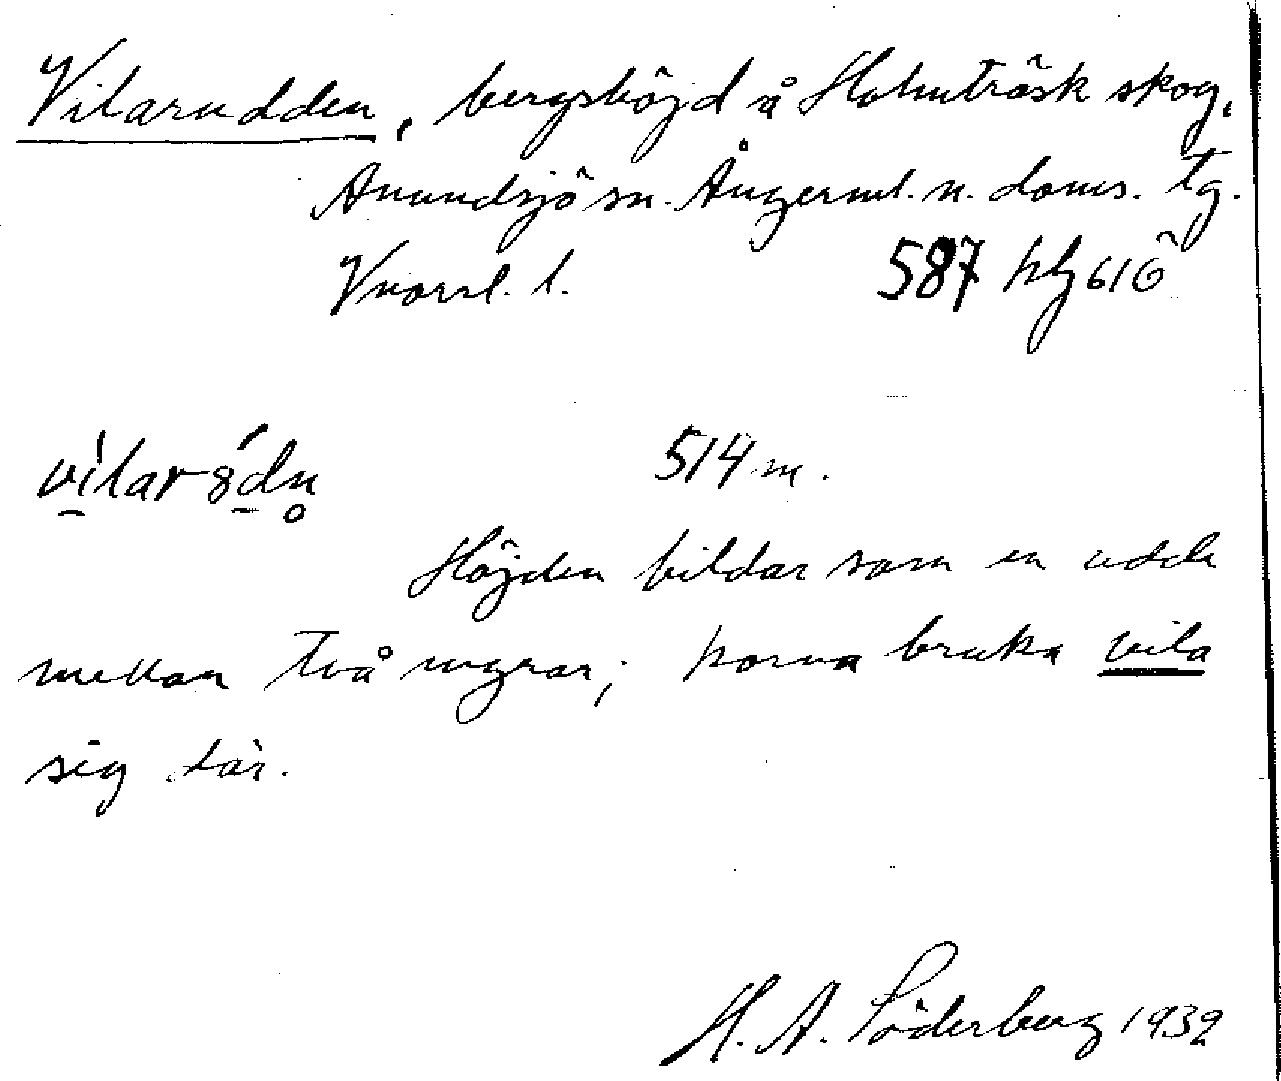 Vilarudden, bergshöjd å Holmträsk skog,
Anundsjö sn. Ångerml. n. doms. tg.
Vnorrl. l. 587 hbj 61Ö
514 m.
Höjden bildar som en udde
mellan två myrar; korna bruka vila
sig där.
H. A. Söderberg 1932